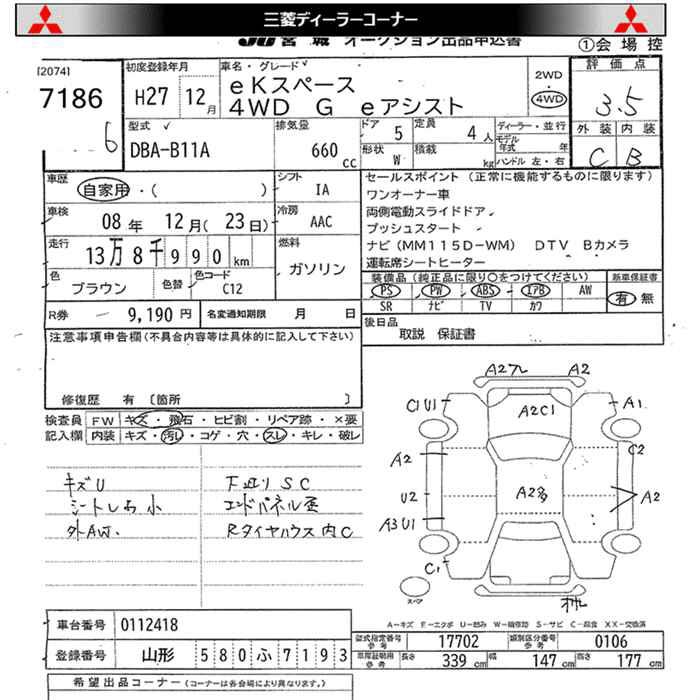 三菱ディーラーコーナー
JU 宮城 オークション出品申込書
①会場控
[2074]
7186
6
初度登録年月
H27 12月
車名・グレード
eKスペース
4WD G eアシスト
2WD
4WD
評価点
3.5
外装 内装
C B
型式
DBA-B11A
排気量
660cc
ドア 5
形状 W
定員 4人
積載 kg
ディーラー・並行
モデル年式 年
ハンドル 左・右
車歴
自家用・( )
シフト
IA
車検
08年 12月(23日)
冷房
AAC
走行
13万8千990km
燃料
ガソリン
色
ブラウン
色替
色コード
C12
R券 9,190円
名変通知期限 月 日
セールスポイント (正常に機能するものに限ります)
ワンオーナー車
両側電動スライドドア
プッシュスタート
ナビ(MM115D-WM) DTV Bカメラ
運転席シートヒーター
装備品(純正品に限り○をつけてください)
PS PW ABS エアB AW
SR ナビ TV カワ
新車保証書
有 無
後日品
取説 保証書
注意事項申告欄(不具合内容等は具体的に記入して下さい)
修復歴 有 〔箇所 〕
検査員 記入欄
FW キズ・飛石・ヒビ割・リペア跡・×要
内装 キズ・汚レ・コゲ・穴・スレ・キレ・破レ
キズU
シートしみ小
外AW.
下廻りSC
エンドパネル歪
Rタイヤハウス内C
A2 A2
C1U1
A2C1
A1
A2
C2
U2
A2
A3U1
C1
スペア
A-キズ E-エクボ U-凹み W-補修跡 S-サビ C-腐食 XX-交換済
車台番号 0112418
登録番号 山形 580ふ7193
型式指定番号 参考 17702
類別区分番号 参考 0106
車庫証明用 参考 長さ 339cm 幅 147cm 高さ 177cm
希望出品コーナー (コーナーは各会場により異なります)